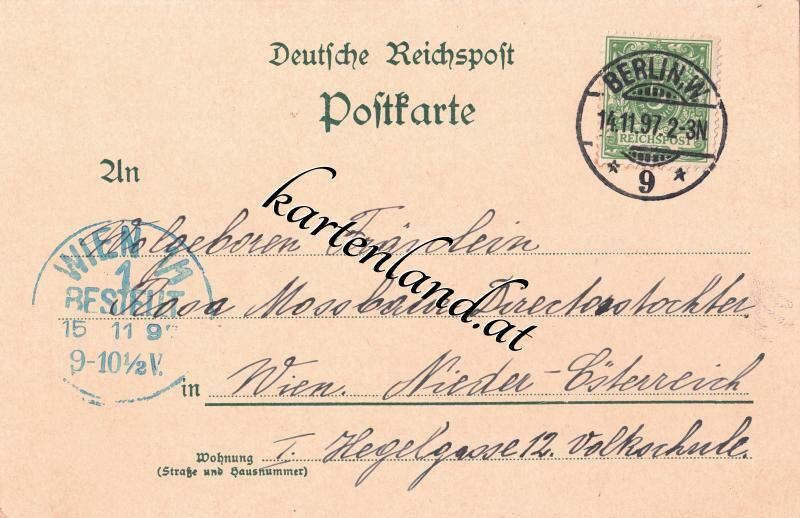 Deutsche Reichspost
Postkarte
BERLIN.W.
14.11.97.2-3N
REICHSPOST
* 9 *
An
kartenland.at
Wolgeboren Fräulein
WIEN
1
BESTELLT
15 11 9
9-10½V.
Rosa Mossbauer Directorstochter
in Wien. Nieder-Österreich
Wohnung
(Straße und Hausnummer)
I. Hegelgasse 12. Volkschule.